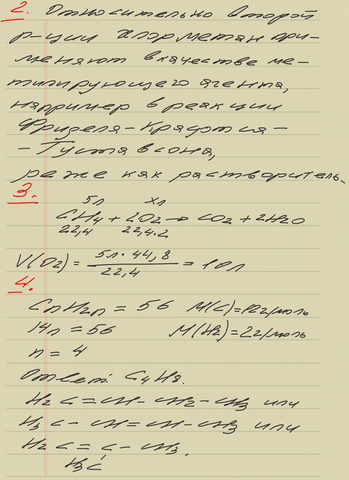 2. Относительно второй
р-ции хлорметан при-
меняют в качестве ме-
тилирующего агента,
например в реакции
Фриделя-Крафтса-
- Густавсона,
реже как растворитель.
3.
5л хл
CH4 + 2O2 → CO2 + 2H2O
22,4 22,4·2
V(O2) = 5л · 44,8 / 22,4 = 10л
4.
CnH2n = 56 M(C) = 12г/моль
14n = 56 M(H2) = 2г/моль
n = 4
Ответ: C4H8.
H2C=CH-CH2-CH3 или
H3C-CH=CH-CH3 или
H2C=C-CH3.
H3C